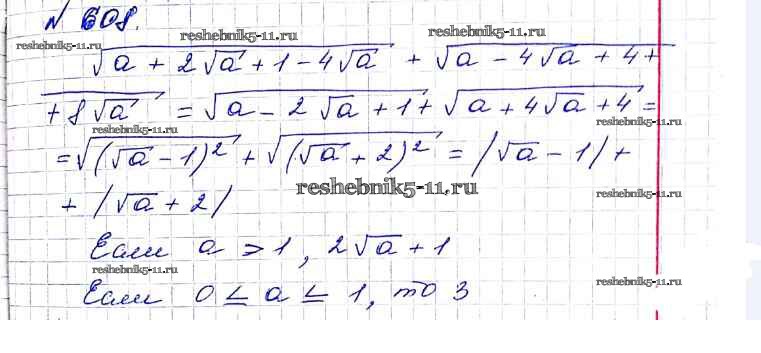 № 608.
reshebnik5-11.ru
reshebnik5-11.ru
reshebnik5-11.ru
√(a + 2√a + 1 - 4√a) + √(a - 4√a + 4 +
+ 8√a) = √(a - 2√a + 1) + √(a + 4√a + 4) =
reshebnik5-11.ru
reshebnik5-11.ru
= √((√a - 1)²) + √((√a + 2)²) = |√a - 1| +
reshebnik5-11.ru
reshebnik5-11.ru
+ |√a + 2|
Если a > 1, 2√a + 1
reshebnik5-11.ru
reshebnik5-11.ru
Если 0 ≤ a ≤ 1, то 3